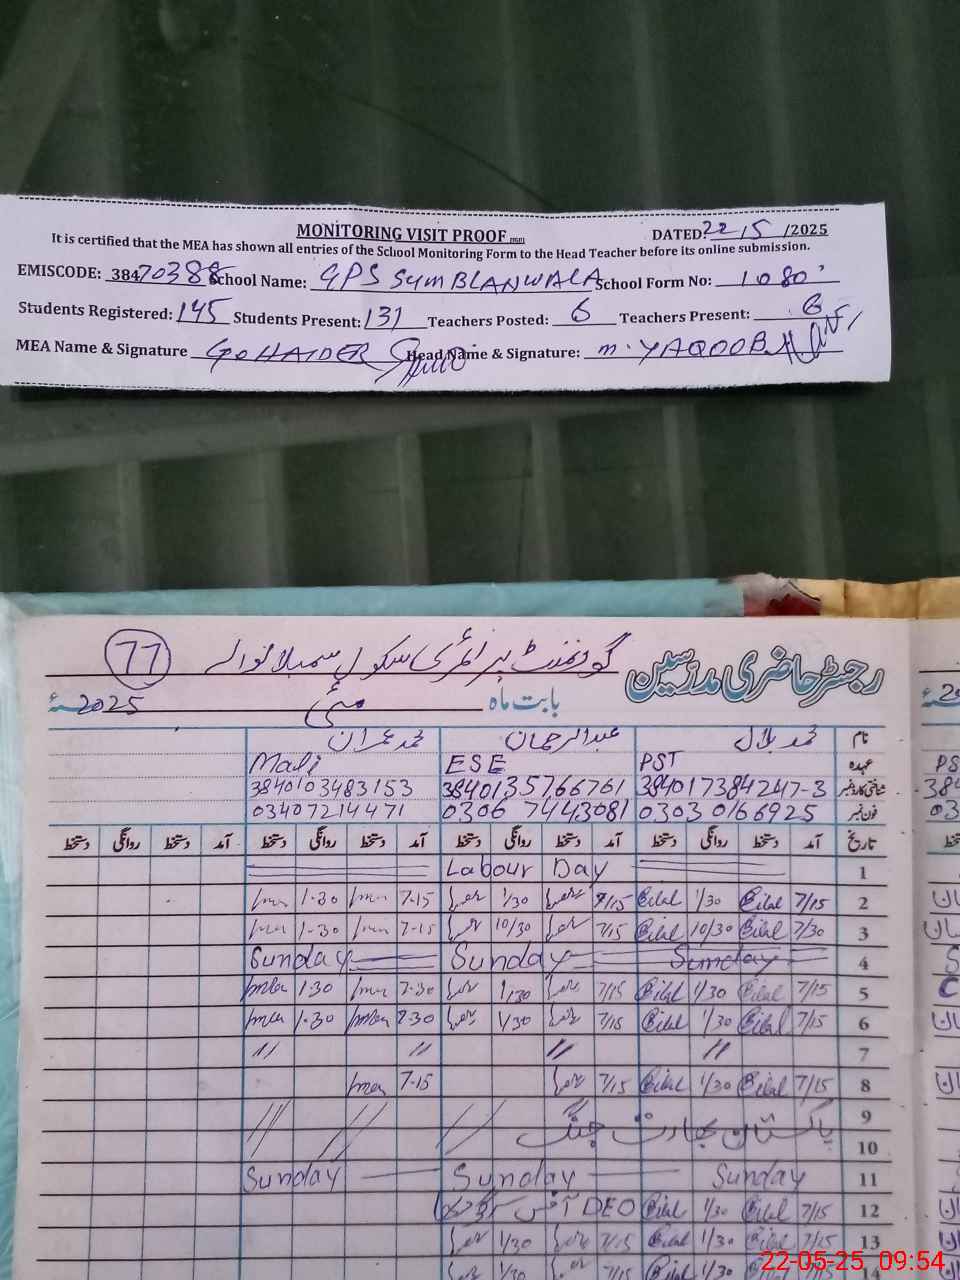 MONİTORİNG VISIT PROOF DATED 22/5/2025
It is certified that the MEA has shown all entries of the School Monitoring Form to the Head Teacher before its online submission.
EMISCODE: 38470388 School Name: GPS SUMBLANWALA School Form No: 1080
Students Registered: 145 Students Present: 131 Teachers Posted: 6 Teachers Present: 6
MEA Name & Signature HAIDER Head Name & Signature: M. YAQOOB
رجسٹر حاضری مدرسین گورنمنٹ پرائمری سکول سمبلانوالہ 77
بابت ماہ مئی 2025ء
نام محمد بلال عبدالرحمان محمد عمران
عہدہ PST ESE Mali
شناختی کارڈ نمبر 384017384247-3 3840135766761 3840103483153
فون نمبر 03030166925 0306 7443081 03407214471
تاریخ آمد دستخط روانگی دستخط آمد دستخط روانگی دستخط آمد دستخط روانگی دستخط آمد دستخط روانگی دستخط
1 Labour Day
2 7/15 Bilal 1/30 Bilal 7/15 1/30 7-15 1-30
3 7/30 Bilal 10/30 Bilal 7/15 10/30 7-15 1-30
4 Sunday Sunday Sunday
5 7/15 Bilal 1/30 Bilal 7/15 1/30 7-30 1-30
6 7/15 Bilal 1/30 Bilal 7/15 1/30 7-30 1-30
7 〃 〃 〃 〃
8 7/15 Bilal 1/30 Bilal 7/15 7-15
9 پاکستان بھارت جنگ
10
11 Sunday Sunday Sunday
12 7/15 Bilal 1/30 Bilal DEO آفس
13 7/15 Bilal 1/30 Bilal 7/15 1/30
14 7/15 Bilal 1/30 Bilal 7/15 1/30
22-05-25 09:54